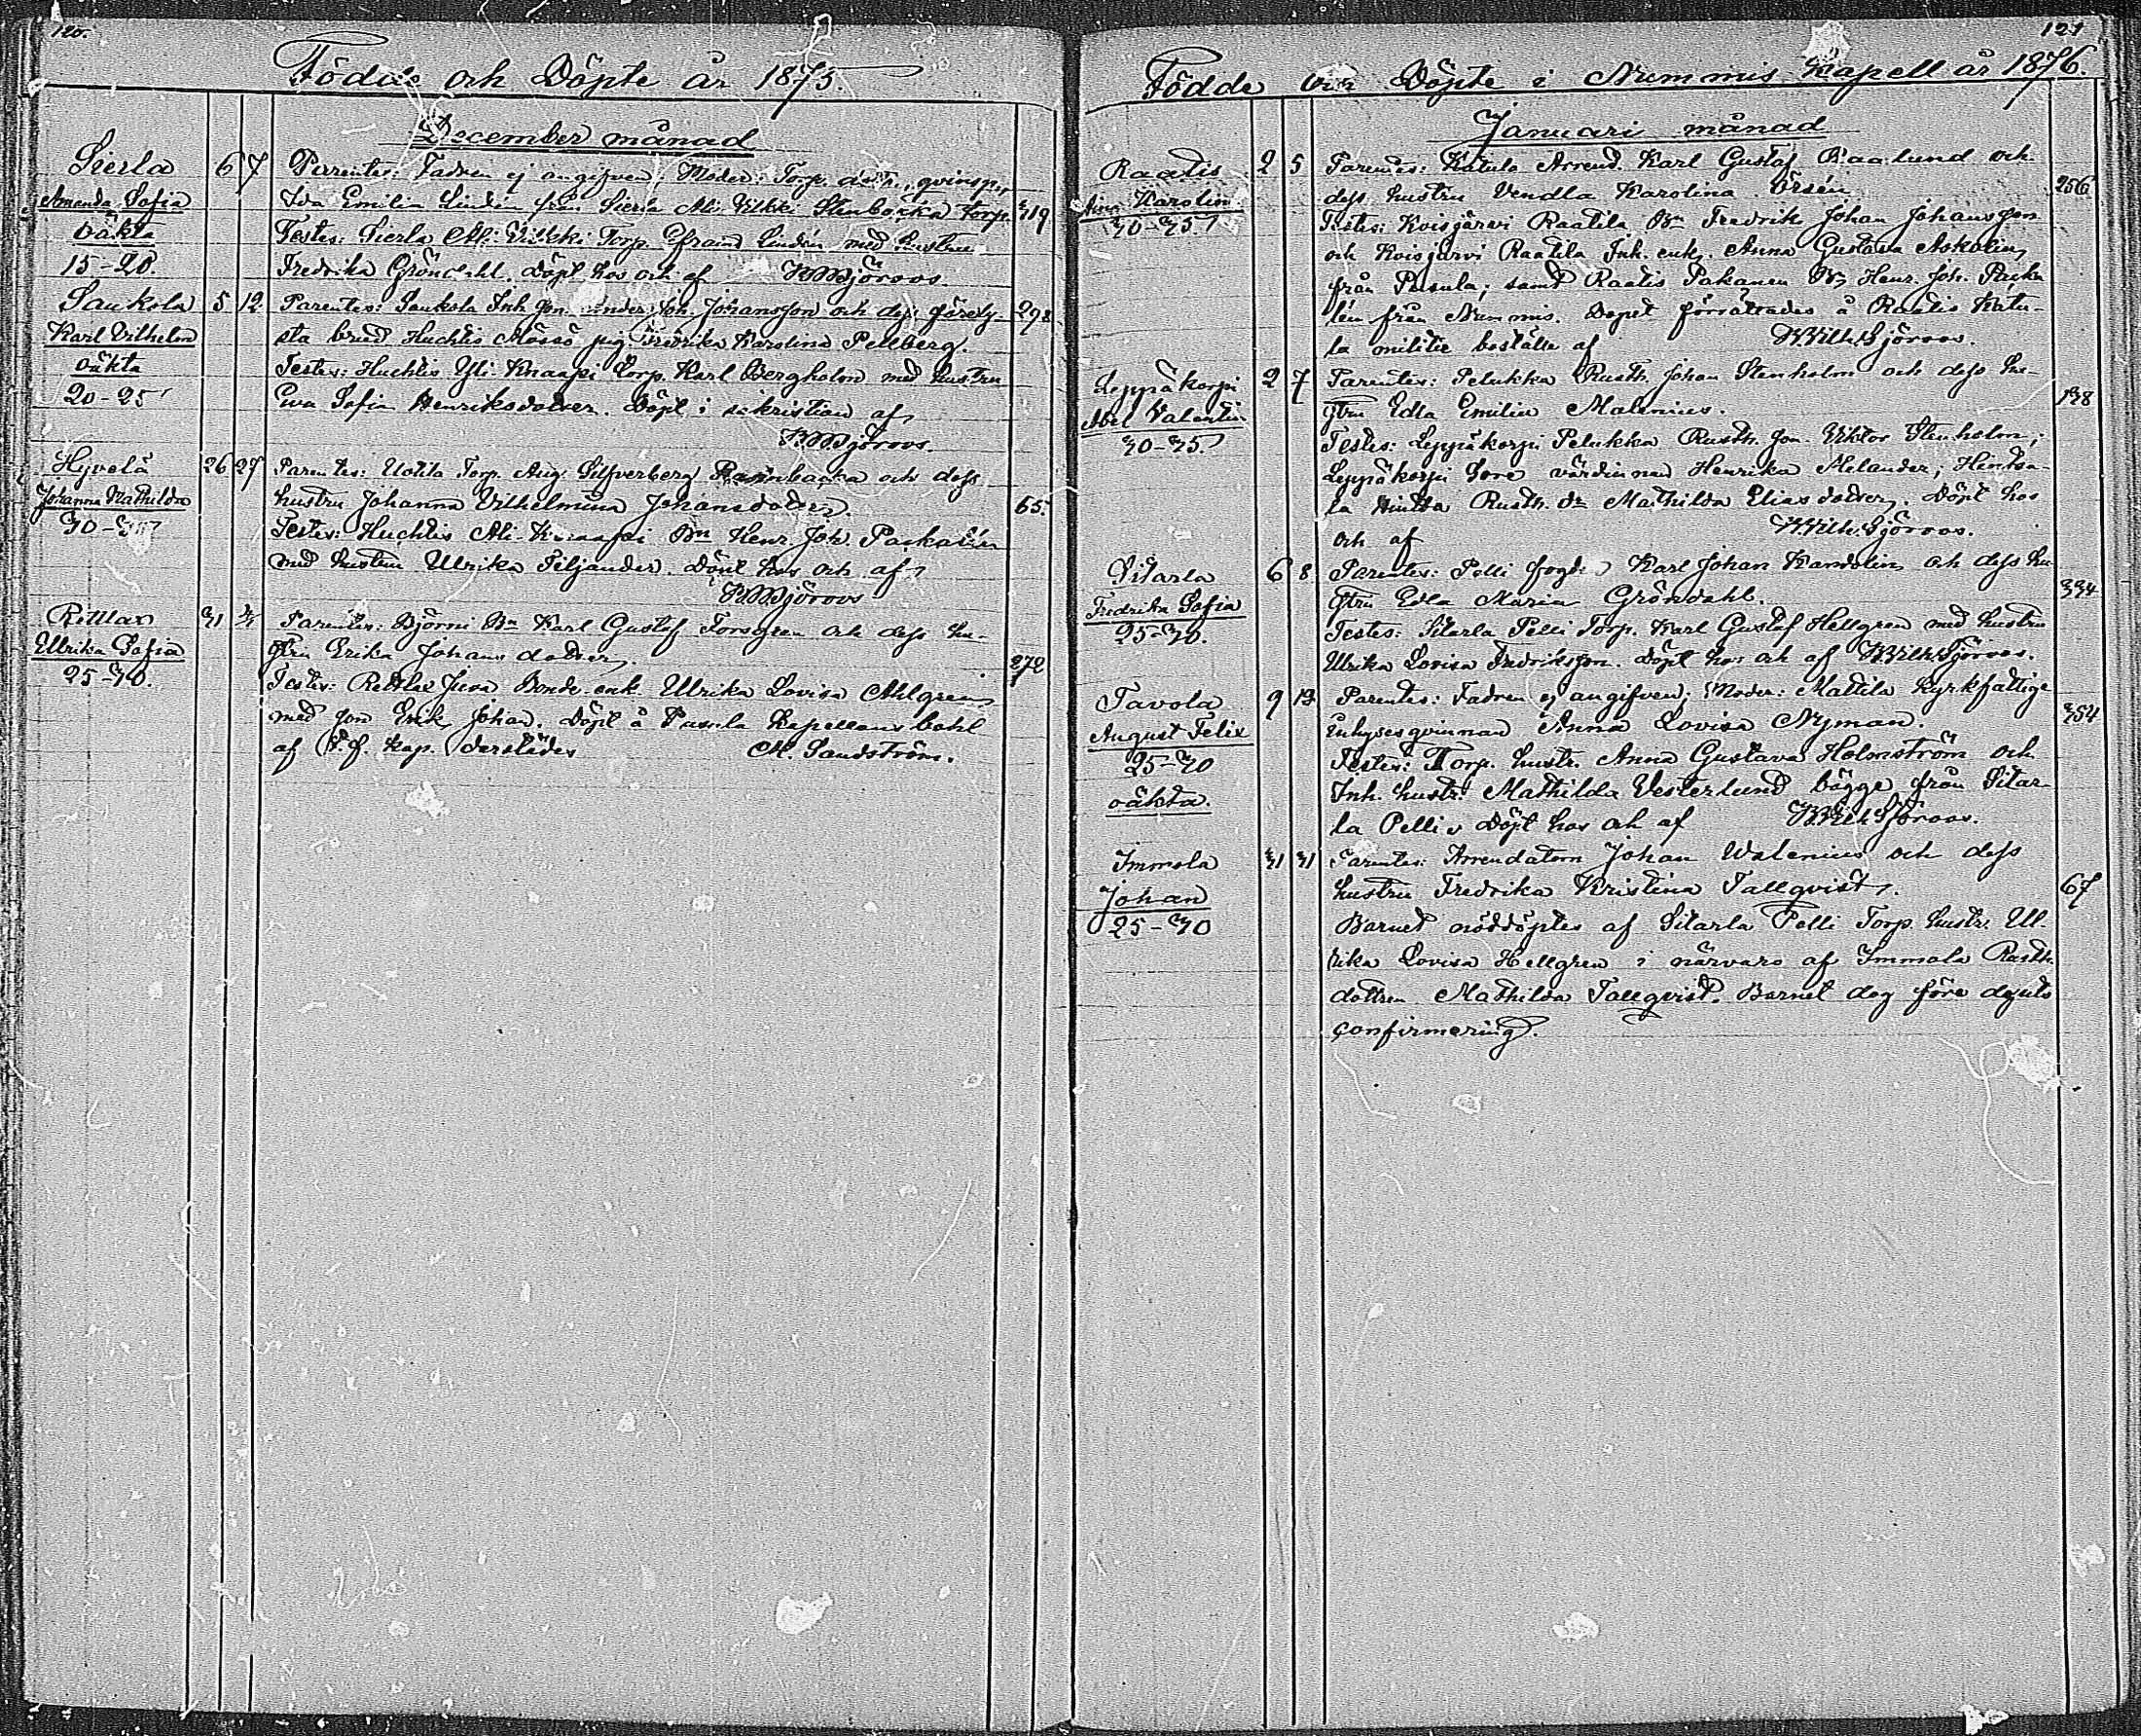 120.
Födde och Döpte år 1875.
December månad
Sierla 6 7 Parentes: Fadren ej angifven; Moder: Torp. dottr., qvinsp.
Amanda Sofia Ida Emilia Lindén från Sierla Ali Vikki Stenbakka torp. 319
oäkta Testes: Sierla Ali Vikki Torp. Efraim Lindén med hustru
15-20. Fredrika Gröndahl. Döpt hos och af Sjöroos.
Saukola 5 12 Parentes: Saukola Inh. son Joh. Johansson och dess förelof- 298
Karl Vilhelm sta brud Huchtis Mössö pig. Fredrika Karolina Pellberg.
oäkta Testes: Huchtis Yli Knaapi Torp. Karl Bergholm med hustru
20-25 Eva Sofia Henriksdotter. Döpt i sakristian af
Sjöroos.
Hyvelä 26 27 Parentes: Uotila Torp. Aug. Silfverberg och dess
Johanna Mathilda hustru Johanna Vilhelmina Johansdotter. 65.
30- Testes: Huchtis Ali-Knaapi Bn Henr. Joh. Packalén
med hustru Ulrika Siljander. Döpt hos och af
Sjöroos
Retlax 31 Parentes: Björni Bn Karl Gustaf Forsgren och dess hu-
Ulrika Sofia stru Erika Johansdotter. 272
25-30. Testes: Retlax Juva Bonde enk. Ulrika Lovisa Ahlgren
med son Erik Johan. Döpt å Pusula Kapellans bohl
af v. kap. derstädes M. Sandström.
121
Födde och Döpte i Nummis Kapell år 1876.
Januari månad
Raatis 2 5 Parentes: Katula Arrend. Karl Gustaf Baalund och
Karolina dess hustru Vendla Karolina Örsén 256
30-35. Testes: Koisjärvi Raatila Bn Fredrik Johan Johansson
och Koisjärvi Raatila Inh. enk. Anna Gustava Askolin,
från Pusula; samt Raatis Pakanen Henr. Joh. Packa-
lén från Nummis. Dopet förrättades å Raatis Katu-
la militie boställe af K. Vilh. Sjöroos.
Leppäkorpi 2 7 Parentes: Pelukka Rusth. Johan Stenholm och dess hu-
Abel Valentin stru Edla Emilia Malenius. 138
30-35. Testes: Leppäkorpi Pelukka Rusth. son Viktor Stenholm;
Leppäkorpi Sore värdinnan Henrika Melander; Hintsa-
la Rusth. dr Mathilda Eliasdotter. Döpt hos
och af K. Vilh. Sjöroos.
Sitarla 6 8 Parentes: Pelli fogde Karl Johan Kandolin och dess hu-
Fredrika Sofia stru Edla Maria Gröndahl. 334
25-30. Testes: Sitarla Pelli Torp. Karl Gustaf Hellgren med hustru
Ulrika Lovisa Fredriksson. Döpt hos och af K. Vilh. Sjöroos.
Tavola 9 13 Parentes: Fadren ej angifven; Moder: Mattila kyrkfattige
August Felix Inhysesqvinnan Anna Lovisa Nyman. 354
25-30 Testes: Torp. hustr. Anna Gustava Holmström och
oäkta. Inh. hustr. Mathilda Vesterlund bägge från Sitar-
la Pelli. Döpt hos och af K. Vilh. Sjöroos.
Immola 31 31 Parentes: Arrendatorn Johan Walenius och dess
Johan hustru Fredrika Kristina Tallqvist. 67
25-30 Barnet nöddöptes af Sitarla Pelli Torp. hustr. Ul-
rika Lovisa Hellgren i närvaro af Immola Rusth.
dottren Mathilda Tallqvist. Barnet dog före dopets
confirmering.